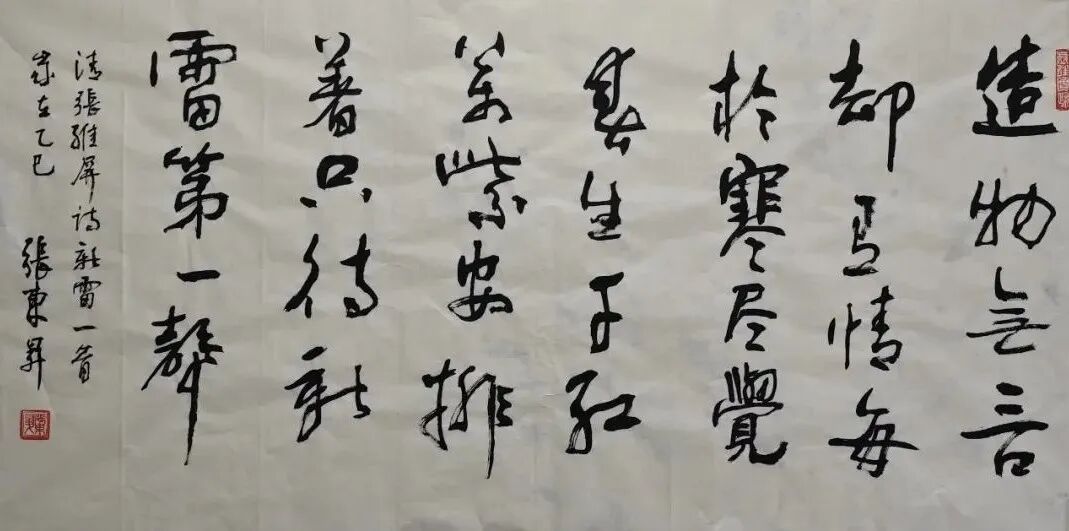 造物無言
却有情每
於寒尽覺
春生千红
萬紫安排
著只待新
雷第一聲
清張維屏詩新雷一首
歲在乙巳
張東昇